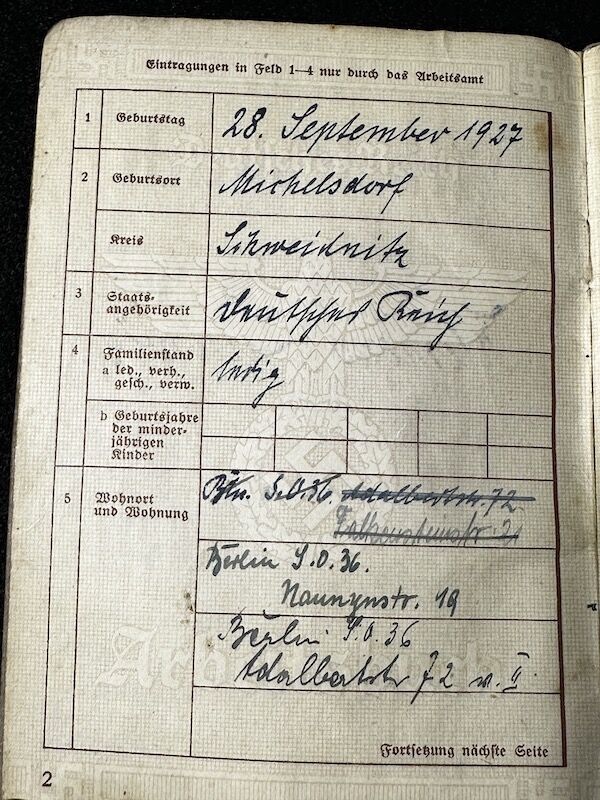 Eintragungen in Feld 1—4 nur durch das Arbeitsamt
1 Geburtstag 28. September 1927
2 Geburtsort Michelsdorf
Kreis Schweidnitz
3 Staats-
angehörigkeit Deutsches Reich
4 Familienstand
a led., verh.,
gesch., verw. ledig
b Geburtsjahre
der minder-
jährigen
Kinder
5 Wohnort
und Wohnung
Bln. S.O.36. Adalbertstr. 72
Falkensteinstr. 21
Berlin S.O.36.
Naunynstr. 19
Berlin S.O.36
Adalbertstr 72 v. II
Fortsetzung nächste Seite
2